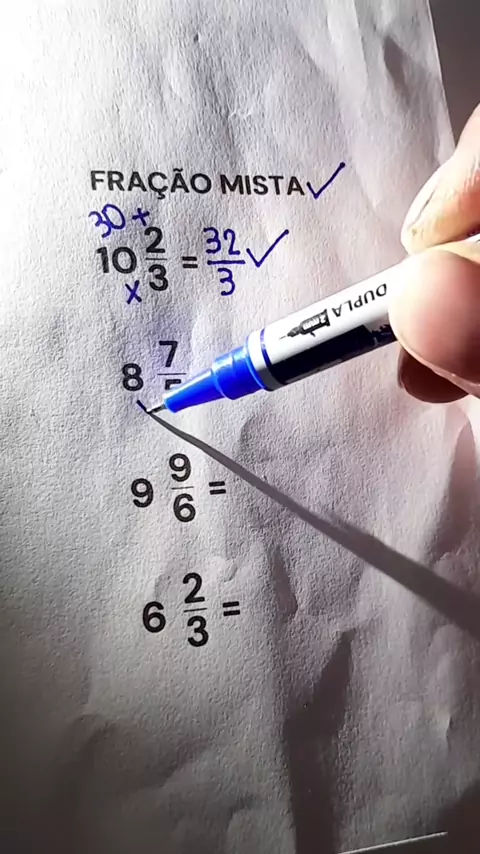 FRAÇÃO MISTA ✓
30 +
10 2/3 = 32/3 ✓
x
8 7/5
9 9/6 =
6 2/3 =
DUPLA